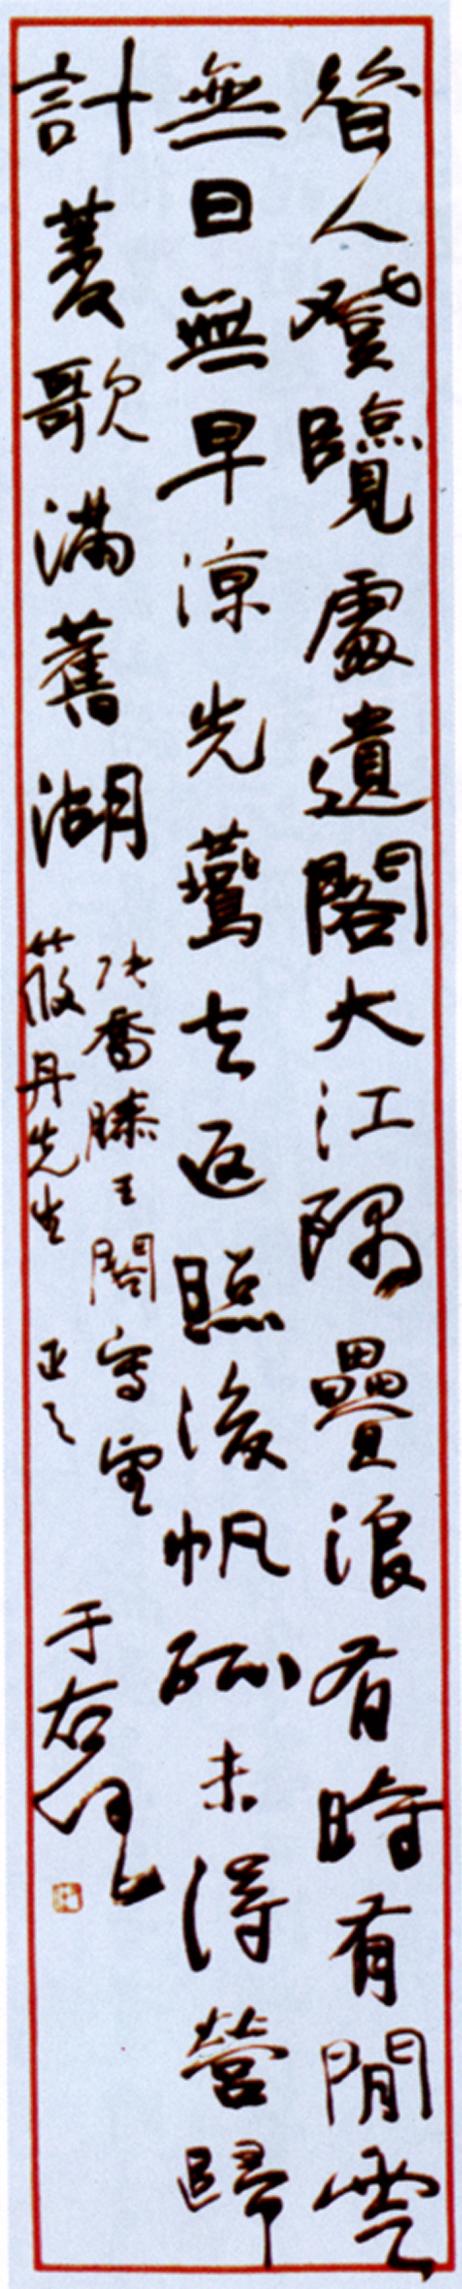 昔人登覽處遺閣大江隅疊浪有時有閒雲
無日無早涼先鷰去返照後帆孤未得營歸
計菱歌滿舊湖
張喬滕王閣
莜丹先生 正之
于右任